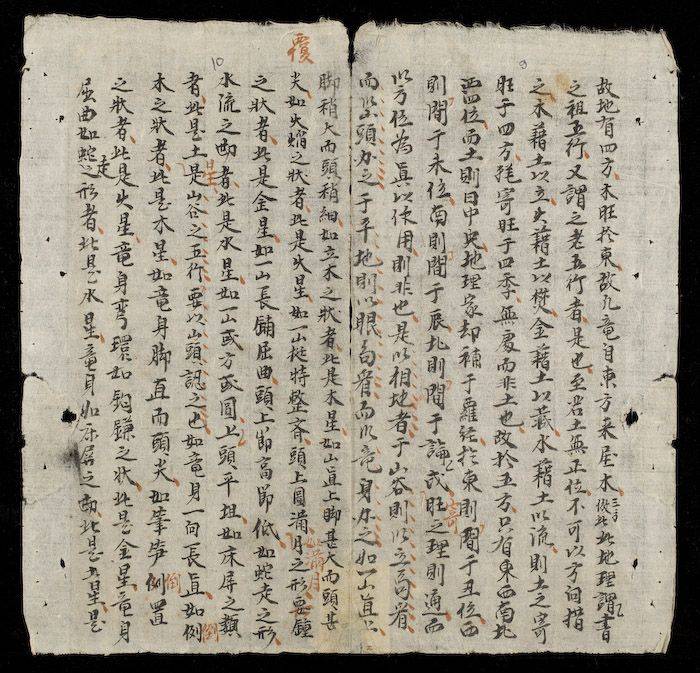 故地有四方木旺於東故凡竜自東方來屋木三方倣此此地理謂書
之祖五行又謂之老五行者是也至若土無正位不可以方向措
之木藉土以立火藉土以熒金藉土以藏水藉土以流則土之寄
旺于四方寄旺于四季無處而非土也故於五方只有東西南北
四位而土則曰中央地理家却補于羅经於東則間于丑位西
則間于未位南則間于辰北則間于戌寄旺之理則通而
以方位為真以作用則非也是以相地者于山谷則以立為省
而以山頭分之于平地則以眼為省而以竜身分之如一山直上
覆
脚稍大而頭稍細如立木之狀者此是木星如山直上脚甚大而頭甚
尖如火焰之狀者此是火星如一山挺特整齊頭上圓如满月之形要鍾
之狀者此是金星如一山長鋪屈曲頭上節高節低如蛇走之形
水流之勢者此是水星如一山或方或圓上頭平坦如床屏之類
者此是土星是山谷之五行要以山頭認之也如竜身一向長直如倒
木之狀者此是木星如竜身脚直而頭尖如筆笋倒置
之狀者此是火星竜身弯環如鈎鐮之狀此是金星竜身
屈曲如蛇走之形者此是水星竜身如床屏之勢此是土星是
9
10